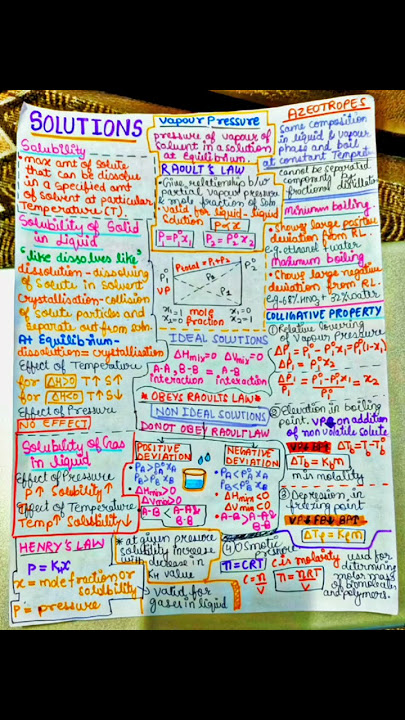 SOLUTIONS
Solubility
• max amt of solute
that can be dissolved
in a specified amt
of solvent at particular
Temperature (T).
Solubility of Solid
in Liquid
"like dissolves like"
dissolution - dissolving
of Solute in Solvent
Crystallisation - collision
of Solute particles and
Separate out from soln.
At Equilibrium -
dissolution = crystallisation
Effect of Temperature
for ΔH>0 T↑ S↑
for ΔH<0 T↑ S↓
Effect of Pressure
NO EFFECT
Solubility of Gas
in liquid
Effect of Pressure
P↑ Solubility↑
Effect of Temperature
Temp↑ Solubility↓
HENRY'S LAW
P = KHx
x = mole fraction or
solubility
P = pressure
Vapour Pressure
pressure of vapour of
Solvent in a solution
at Equilibrium.
RAOULT'S LAW
• Give relationship b/w
partial vapour pressure
& mole fraction of Soln
valid for liquid-liquid
Solution
P ∝ x
P1 = P1°x1
P2 = P2°x2
Ptotal = P1+P2
P1°
VP
P2
P1
P2°
x1=1
x2=0
mole
fraction
x1=0
x2=1
IDEAL SOLUTIONS
ΔHmix=0 ΔVmix=0
A-A, B-B = A-B
interaction interaction
* OBEYS RAOULT'S LAW *
NON IDEAL SOLUTIONS
DO NOT OBEY RAOULT LAW
POSITIVE
DEVIATION
• PA>PA°XA
PB>PB°XB
• ΔHmix>0
ΔVmix>0
A-B < A-A
B-B
NEGATIVE
DEVIATION
• PA<PA°XA
PB<PB°XB
ΔHmix<0
ΔVmix<0
• A-B > A-A
B-B
* at given pressure
solubility increase
with decrease in
KH value
valid for
gases in liquid
AZEOTROPES
Same composition
in liquid & vapour
phase and boil
at constant Temp
cannot be separated
components by
fractional distillation
minimum boiling
• Shows large positive
deviation from RL.
e.g. ethanol & water
Maximum boiling
• Shows large negative
deviation from RL.
e.g. 68% HNO3 + 32% water
COLLIGATIVE PROPERTY
① Relative lowering
of Vapour Pressure
② Elevation in boiling
point. VP↓ on addition
of non volatile solute
ΔTb = Tb-Tb°
ΔTb = Kbm
m is molality
③ Depression in
freezing point
ΔTf = Kfm
④ Osmotic
pressure
π = CRT
C = n/V
C is molarity
π = nRT/V
used for
determining
molar mass
of biomolecules
and polymers.